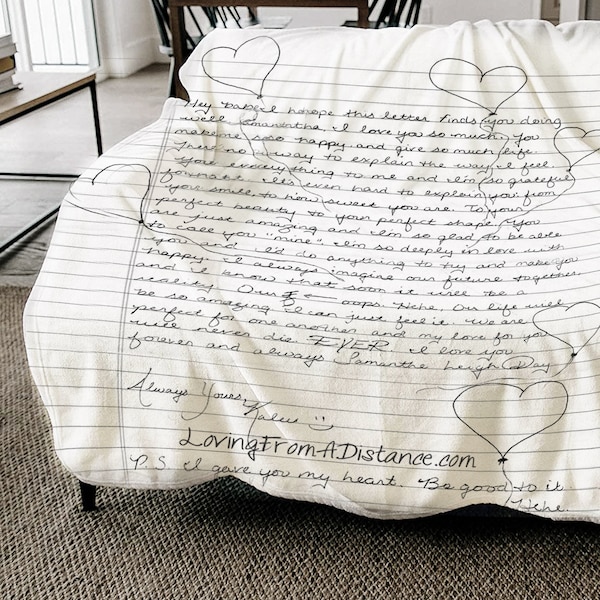 Hey babe! I hope this letter finds you doing
well Samantha. I love you so much. You
make me soo happy and give so much life.
There's no way to explain the way I feel.
Your everything to me and I'm so grateful
for that. It's even hard to explain you from
you smile to how sweet you are. To your
perfect beauty to your perfect shape. You
are just amazing and I'm so glad to be able
to call you "mine". I'm so deeply in love with
you and I'd do anything to try and make you
happy. I always imagine our future together
and I know that soon it will be a
reality. Our ← oops. Hehe. Our life will
be so amazing I can just feel it. We are
perfect for one another and my love for you
will never die. EVER. I love you
forever and always Samantha Leigh Day
Always Yours,
Kaleu
LovingFromADistance.com
P.S. I gave you my heart. Be good to it.
Hehe.